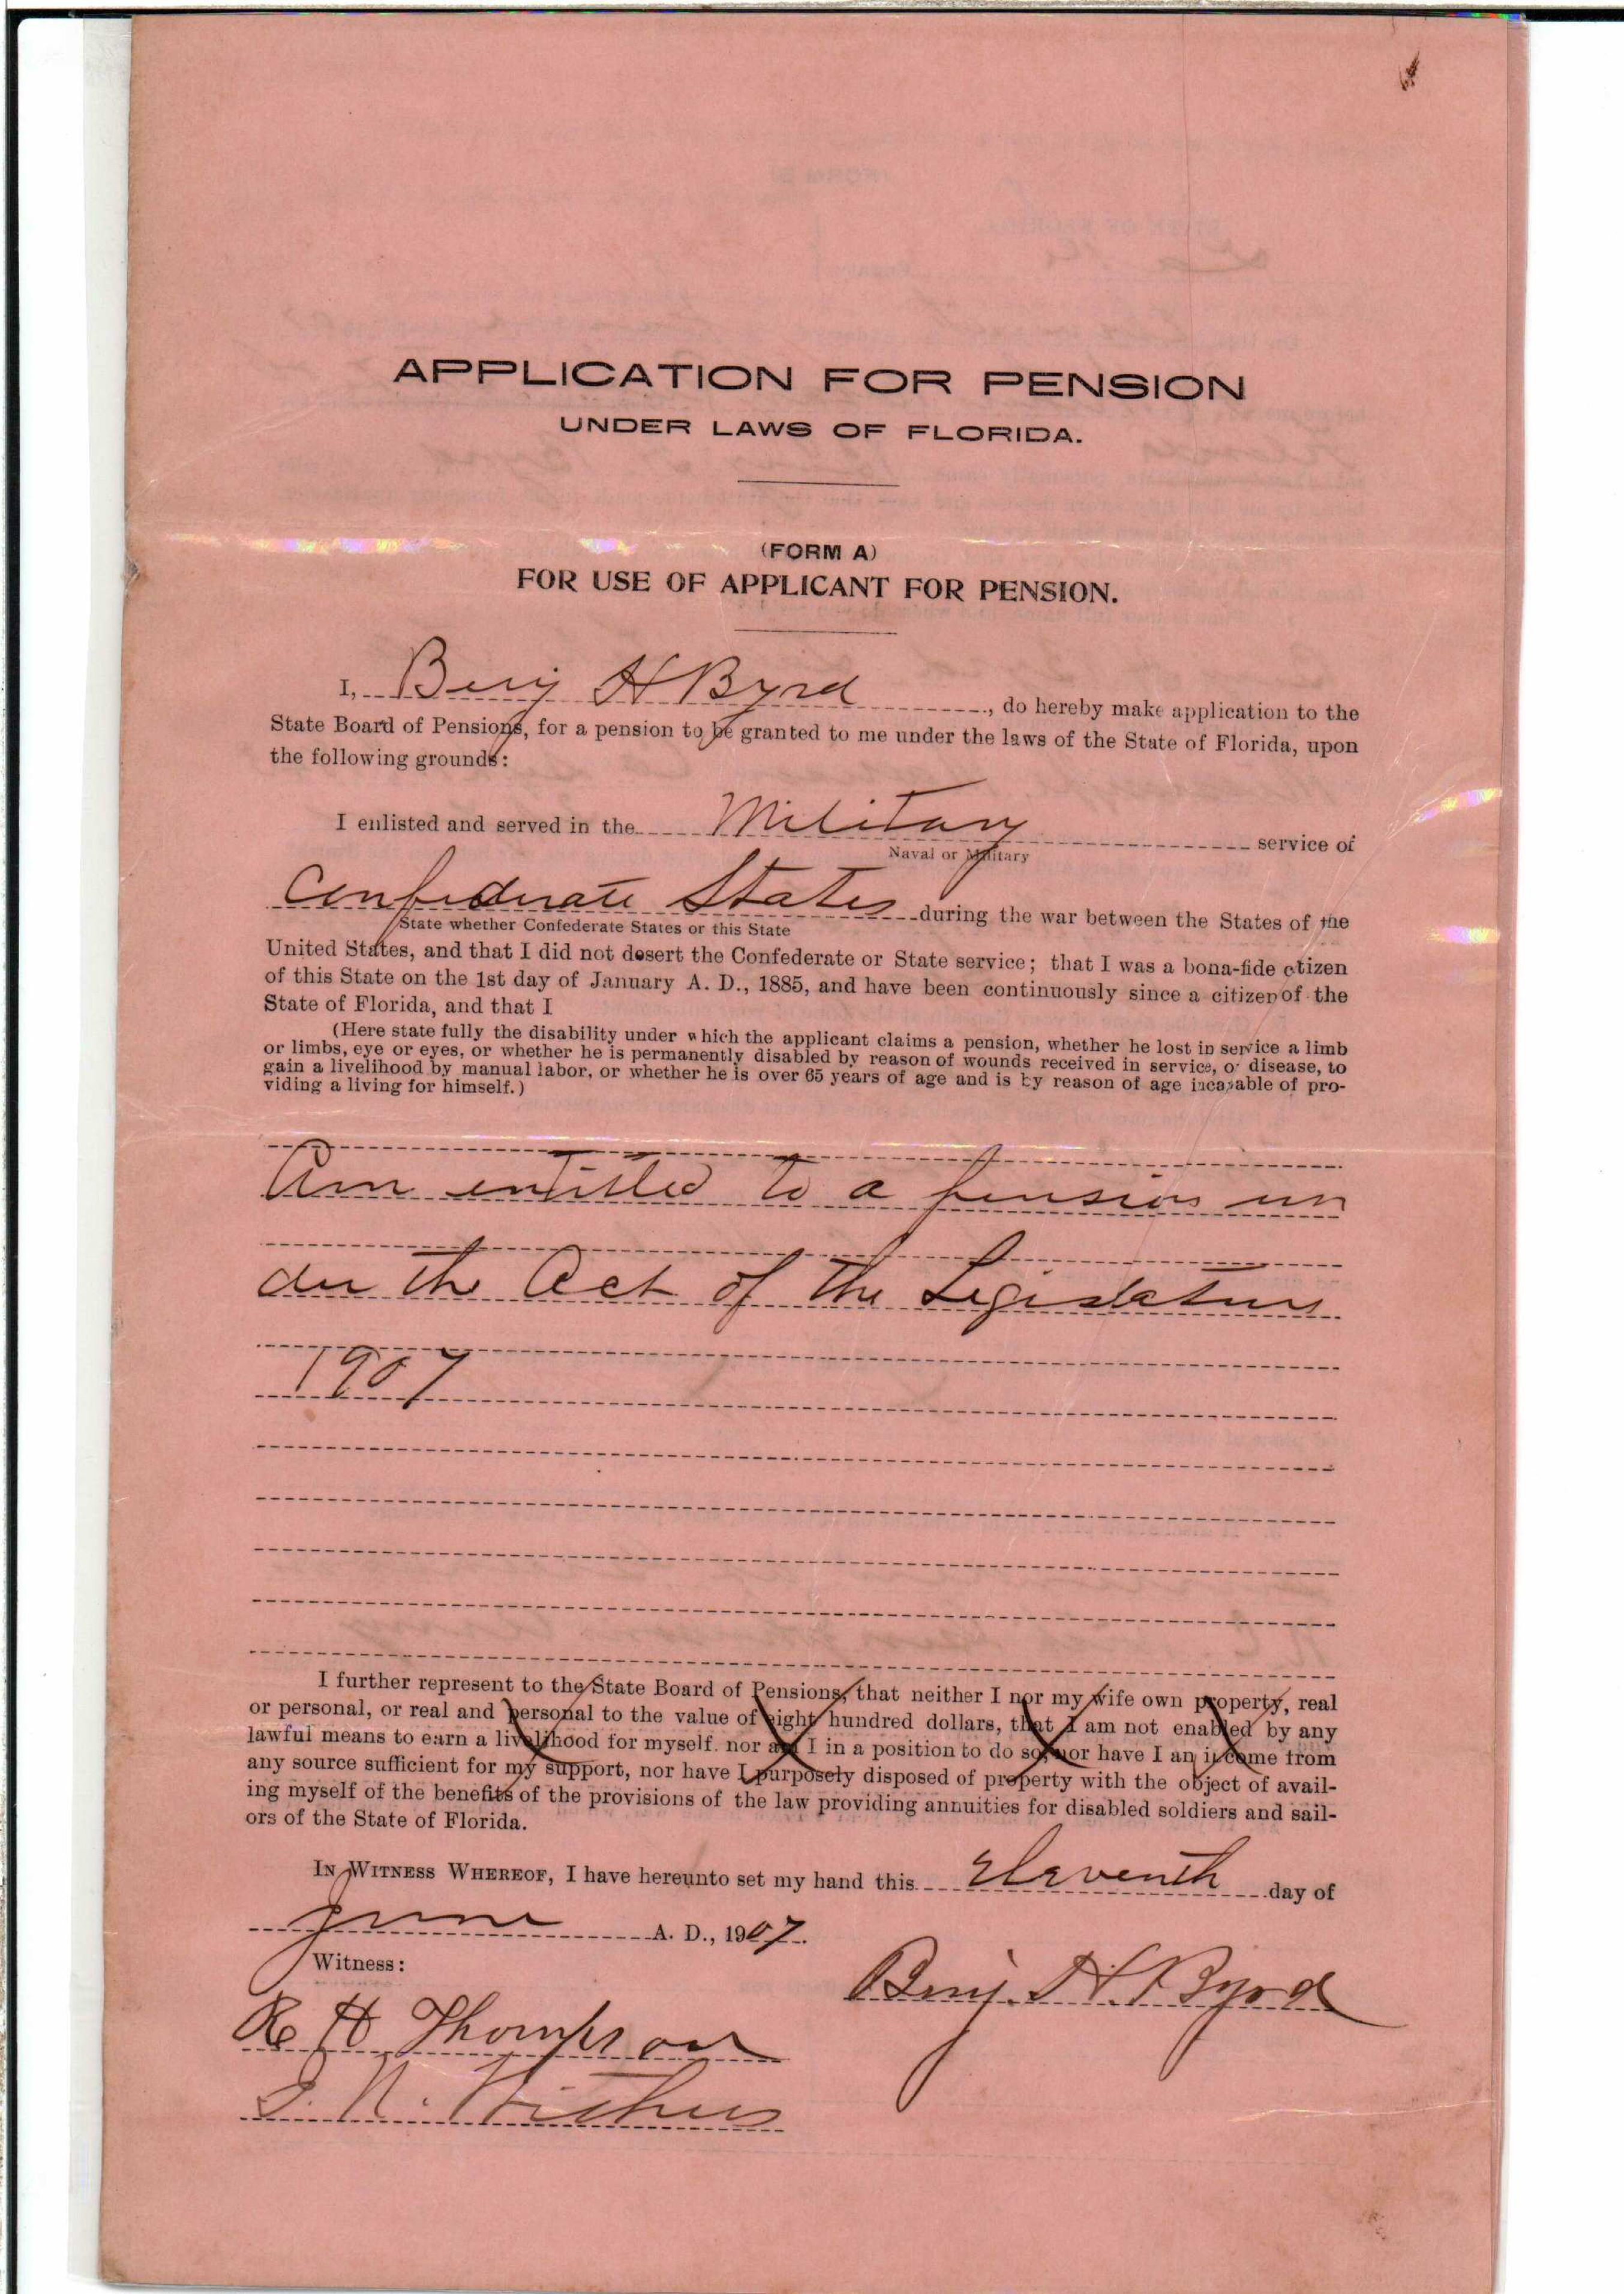 APPLICATION FOR PENSION
UNDER LAWS OF FLORIDA.
(FORM A)
FOR USE OF APPLICANT FOR PENSION.
I, Benj H Byrd, do hereby make application to the
State Board of Pensions, for a pension to be granted to me under the laws of the State of Florida, upon
the following grounds:
I enlisted and served in the Military service of
Naval or Military
Confederate States during the war between the States of the
State whether Confederate States or this State
United States, and that I did not desert the Confederate or State service; that I was a bona-fide ctizen
of this State on the 1st day of January A. D., 1885, and have been continuously since a citizen of the
State of Florida, and that I
(Here state fully the disability under which the applicant claims a pension, whether he lost in service a limb
or limbs, eye or eyes, or whether he is permanently disabled by reason of wounds received in service, or disease, to
gain a livelihood by manual labor, or whether he is over 65 years of age and is by reason of age incapable of pro-
viding a living for himself.)
Am entitled to a pension un
der the Act of the Legislature
1907
I further represent to the State Board of Pensions, that neither I nor my wife own property, real
or personal, or real and personal to the value of eight hundred dollars, that I am not enabled by any
lawful means to earn a livelihood for myself. nor am I in a position to do so, nor have I an income from
any source sufficient for my support, nor have I purposely disposed of property with the object of avail-
ing myself of the benefits of the provisions of the law providing annuities for disabled soldiers and sail-
ors of the State of Florida.
IN WITNESS WHEREOF, I have hereunto set my hand this Eleventh day of
June A. D., 1907.
Witness:
Benj. H. Byrd
R H Thompson